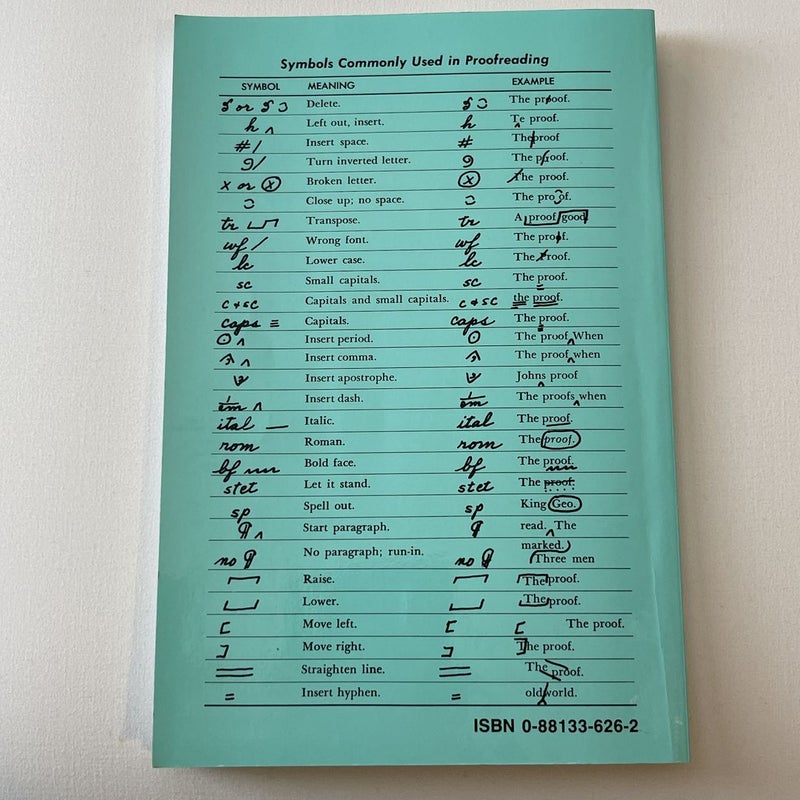 Symbols Commonly Used in Proofreading
SYMBOL MEANING EXAMPLE
or Delete. The proof.
h ‸ Left out, insert. h Te proof.
#/ Insert space. # Theproof
9/ Turn inverted letter. 9 The proof.
x or ⓧ Broken letter. ⓧ The proof.
Close up; no space. The pro of.
tr Transpose. tr A proof good
wf / Wrong font. wf The proof.
lc Lower case. lc The Proof.
sc Small capitals. sc The proof.
C + sc Capitals and small capitals. C + sc the proof.
caps ≡ Capitals. caps The proof.
⊙ ‸ Insert period. ⊙ The proof‸When
‸ Insert comma. The proof‸when
Insert apostrophe. Johns proof
1/em ‸ Insert dash. 1/em The proofs‸when
ital — Italic. ital The proof.
rom Roman. rom The proof.
bf Bold face. bf The proof.
stet Let it stand. stet The proof.
sp Spell out. sp King Geo.
¶ ‸ Start paragraph. ¶ read.‸The
no ¶ No paragraph; run-in. no ¶ marked.
Three men
Raise. The proof.
Lower. The proof.
[ Move left. [ [ The proof.
] Move right. ] The proof.
Straighten line. The proof.
= Insert hyphen. = oldworld.
ISBN 0-88133-626-2